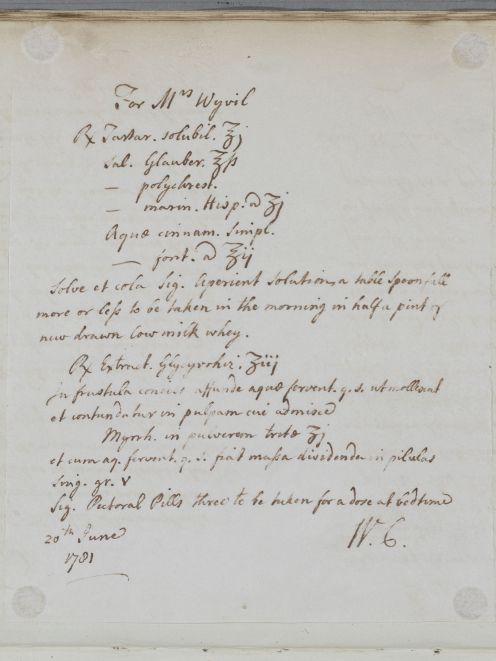 For Mrs Wyvil
℞ Tartar. solubil. ʒj
Sal. Glauber. ʒſs
— polychrest.
— marin. Hisp. a ʒj
Aquæ cinnam. simpl.
— font. a ℥ij
Solve et cola Sig. Aperient Solution, a table spoonfull
more or less to be taken in the morning in half a pint of
new drawn Cow milk whey.
℞ Extract. Glycyrrhiz. ʒiij
in frustula concis affunde aquæ fervent. q. s. ut mollescat
et contundatur in pulpam cui admisce
Myrrh. in pulverem tritæ ʒj
et cum aq. fervent. q. s. fiat massa dividenda in pilulas
sing. gr. v
Sig. Pectoral Pills three to be taken for a dose at bedtime
20th June W. C.
1781